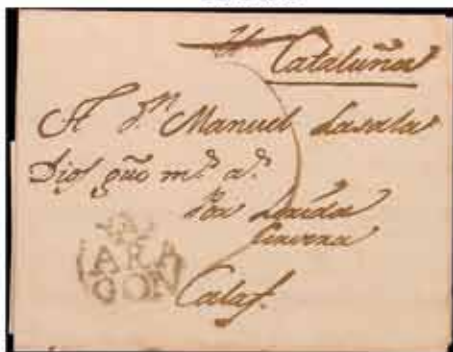 Cataluña
A Dn Manuel Lasala
Dios gue ms as
Por Lerida
Cervera
Calaf.
ARA
GON